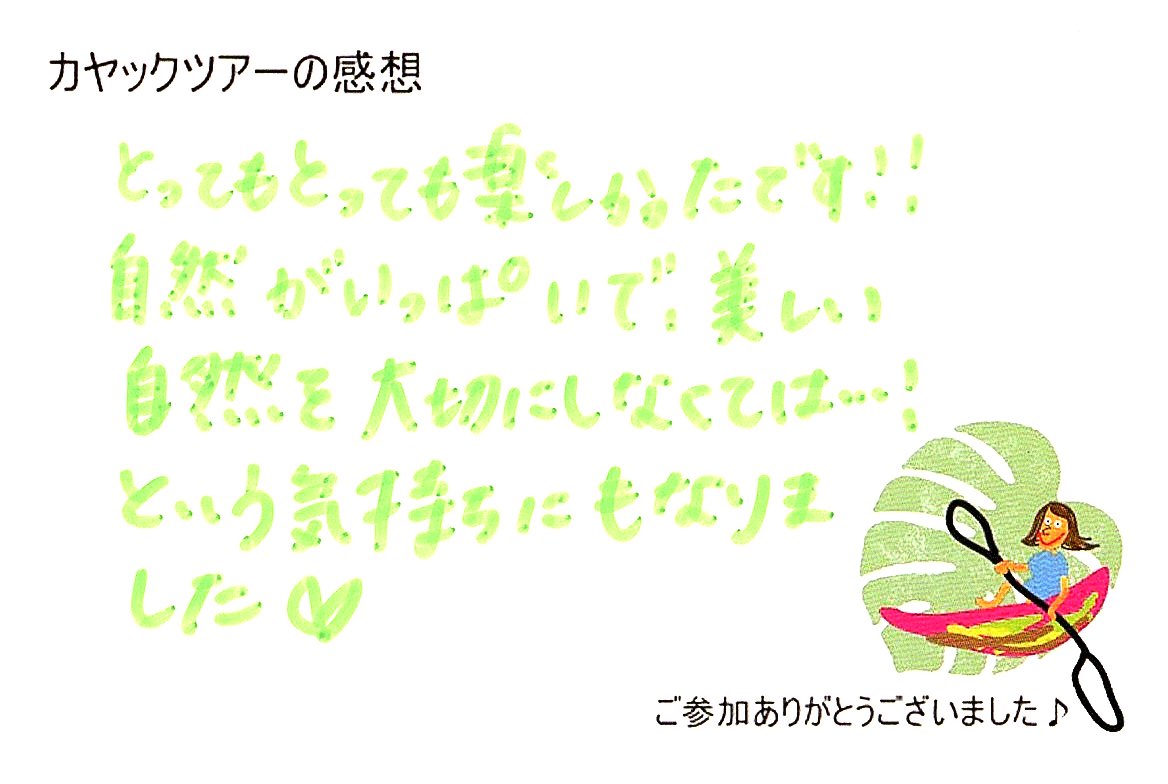 カヤックツアーの感想
とってもとっても楽しかったです!!
自然がいっぱいで、美しい
自然を大切にしなくては…!
という気持ちにもなりま
した♡
ご参加ありがとうございました♪